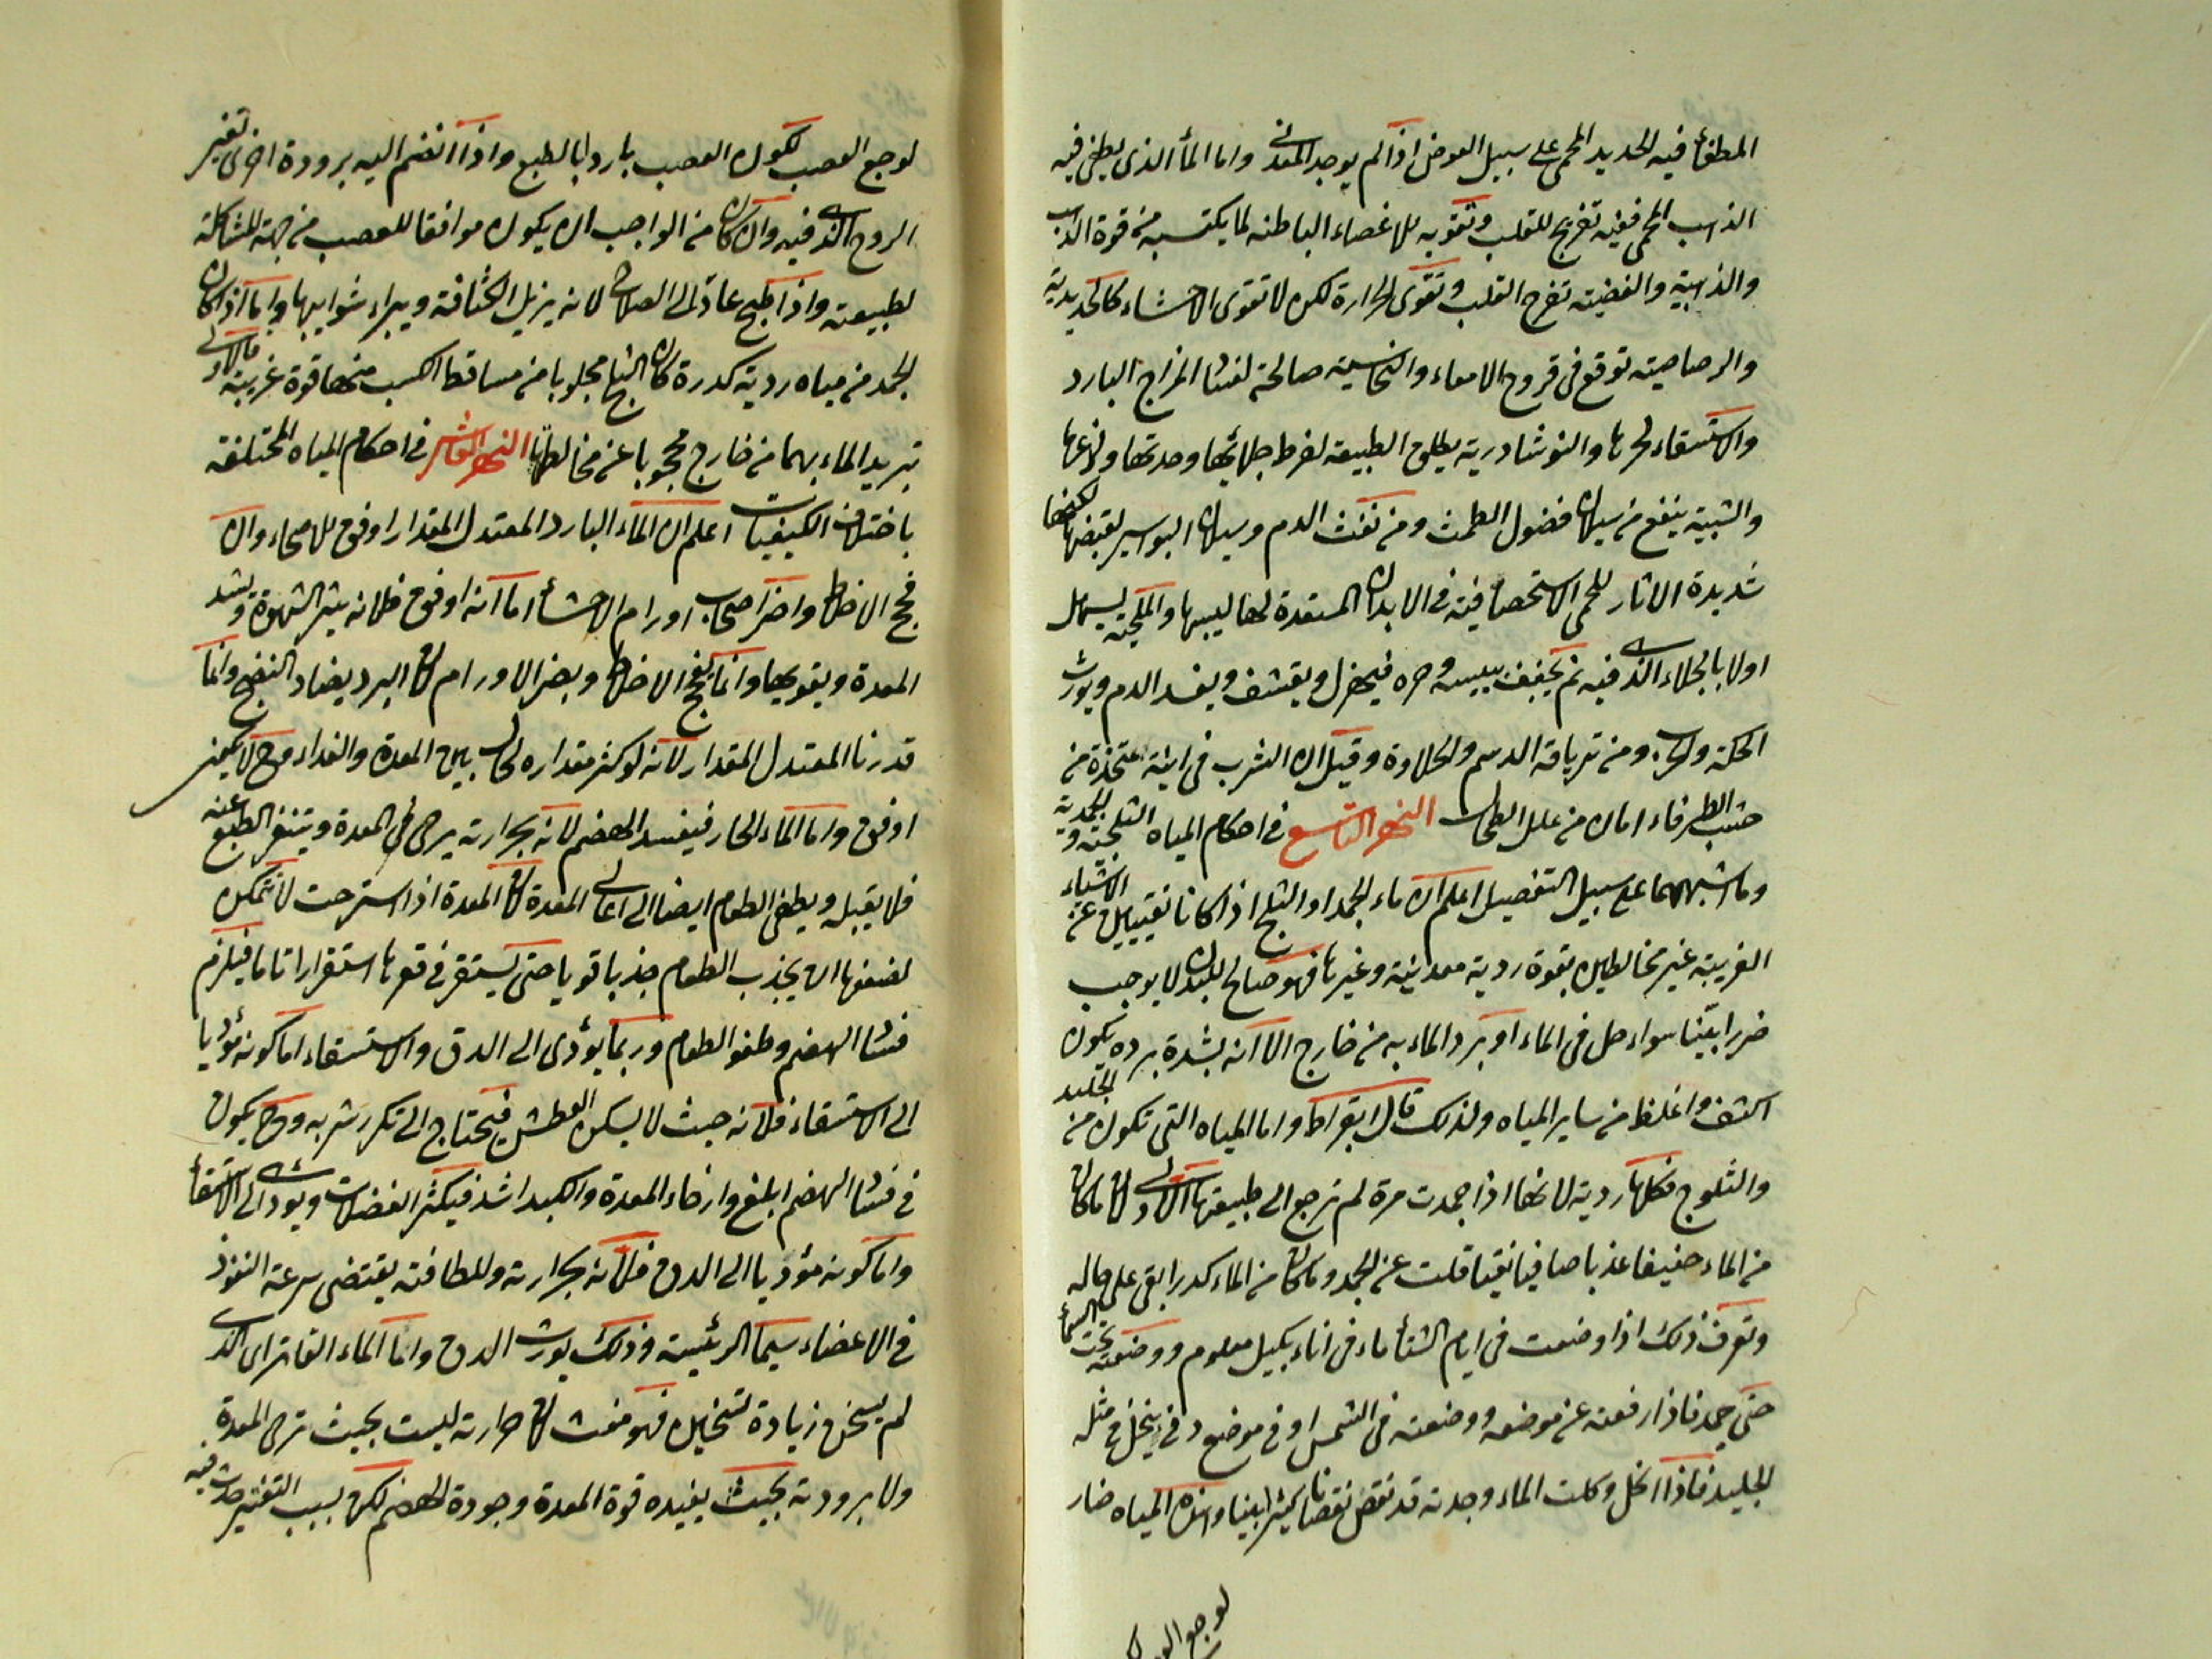 المطفأ فيه الحديد المحمى على سبيل العوض اذا لم يوجد المعدنى واما المأ الذى يطفى فيه
الذهب المحمى ففيه تفريح للقلب وتقويه للاعضاء الباطنه لما يكتسبه من قوة الذهب
والذهبية والفضيته تفرح القلب وتقوى الحرارة لكن لا تقوى الاحشاء كالحديدية
والرصاصيته توقع فى قروح الامعاء والنحاسيته صالحة لفساد المزاج البارد
والاستسقاء لحرها والنوشادرية يطلق الطبيعه لفرط جلائها وحدتها ولذعها
والشبية ينفع من سيلان فضول الطمث ومن نفث الدم وسيلان البواسير لقبضها لكنها
شديدة الاثار للحمى الاستحصافية فى الابدان المستعدة لها ليبسها والملحية يسهل
اولا بالجلاء الذى فيه ثم يجفف بيبسه وحره فيهزل ويقشف ويفسد الدم ويورث
الحكة والجرب ومن ترياقه الدسم والحلاوة وقيل ان الشرب فى انية متخذة من
خشب الطرفاء امان من علل الطحال النهر التاسع فى احكام المياه الثلجية والجمدية
وما اشبههما على سبيل التفصيل اعلم ان ماء الجمد او الثلج اذا كانا نقيين عن الاشياء
الغريبة غير مخالطين بقوة ردية معدنية وغيرها فهو صالح للبدن لا يوجب
ضررا بيّنا سواء حل فى الماء او برد الماء به من خارج الا انه لشدة برده يكون
اكثف واغلظ من ساير المياه ولذلك قال ابقراط واما المياه التى تكون من الجليد
والثلوج فكلها ردية لانها اذا جمدت مرة لم ترجع الى طبيعتها الاولى لان ما كان
من الماء خفيفا عذبا صافيا نقيا قلت عن الجمد وما كان من الماء كدرا بقى على حاله
وتعرف ذلك اذا وضعت فى ايام الشتأ ماء فى اناء بكيل معلوم ووضعته تحت السمأ
حتى جمد فاذا رفعته عن موضعه ووضعته فى الشمس او فى موضع دفى ينحل فى مثله
الجليد فاذا انحل وكلت الماء وجدته قد نقص نقصانا كثيرا بينا وهذه المياه ضار
لوجع العصب
لوجع العصب لكون العصب باردا بالطبع واذا انضم اليه برودة اخرى تغير
الروح الذى فيه وان كان من الواجب ان يكون موافقا للعصب من جهة المشاكلة
لطبيعته واذا طبخ عاد الى الصلاح لانه يزيل الكثافة ويبراء شوايبها واما اذا كان
الجمد من مياه ردية كدرة كان الثلج مجلوبا من مساقط اكسب منها قوة غريبة فالاولى
تبريد الماء بهما من خارج محجوبا عن مخالطتها النهر العاشر فى احكام المياه المختلفة
باختلاف الكيفيات اعلم ان الماء البارد المعتدل المقدار اوفق للاصحاء وان
فجج الاخلاط واضر اصحاب اورام الاحشأ اما انه اوفق فلانه يثير الشهوة ويشد
المعدة ويقويها وانما يفجج الاخلاط ويضر الاورام لان البرد يضاد النضج وانما
قدرنا المعتدل المقدار لانه لو كثر مقداره لحال بين المعدة والغداء وح لا يكون
اوفق واما الماء الحار فيفسد الهضم لانه بحرارته يرخى المعدة وينفر الطبع عنه
فلا يقبله ويطفى الطعام ايضا الى اعالى المعدة لان المعدة اذا استرخت لا تتمكن
لضعفها ان يجذب الطعام جذبا قويا حتى يستقر فى قعرها استقرارا تاما فيلزم
فساد الهضم وطفو الطعام وربما يؤدى الى الدق والاستسقاء اما كونه مؤديا
الى الاستسقاء فلانه حيث لا يسكن العطش فيحتاج الى تكرر شربه وح يكون
فى فساد الهضم ابلغ وارخاء المعدة والكبد اشد فيكثر الفضلات ويودى الى الاستسقأ
واما كونه مؤديا الى الدق فلانه بحرارته وللطافته يقتضى سرعة النفوذ
فى الاعضاء سيما الرئيسة وذلك يورث الدق واما الماء الفاتر اى الذى
لم يسخن زيادة تسخين فهو مغث لان حرارته ليست بحيث ترخى المعدة
ولا برودته بحيث يفيده قوة المعدة وجودة الهضم لكن بسبب التفتير حدث فيه